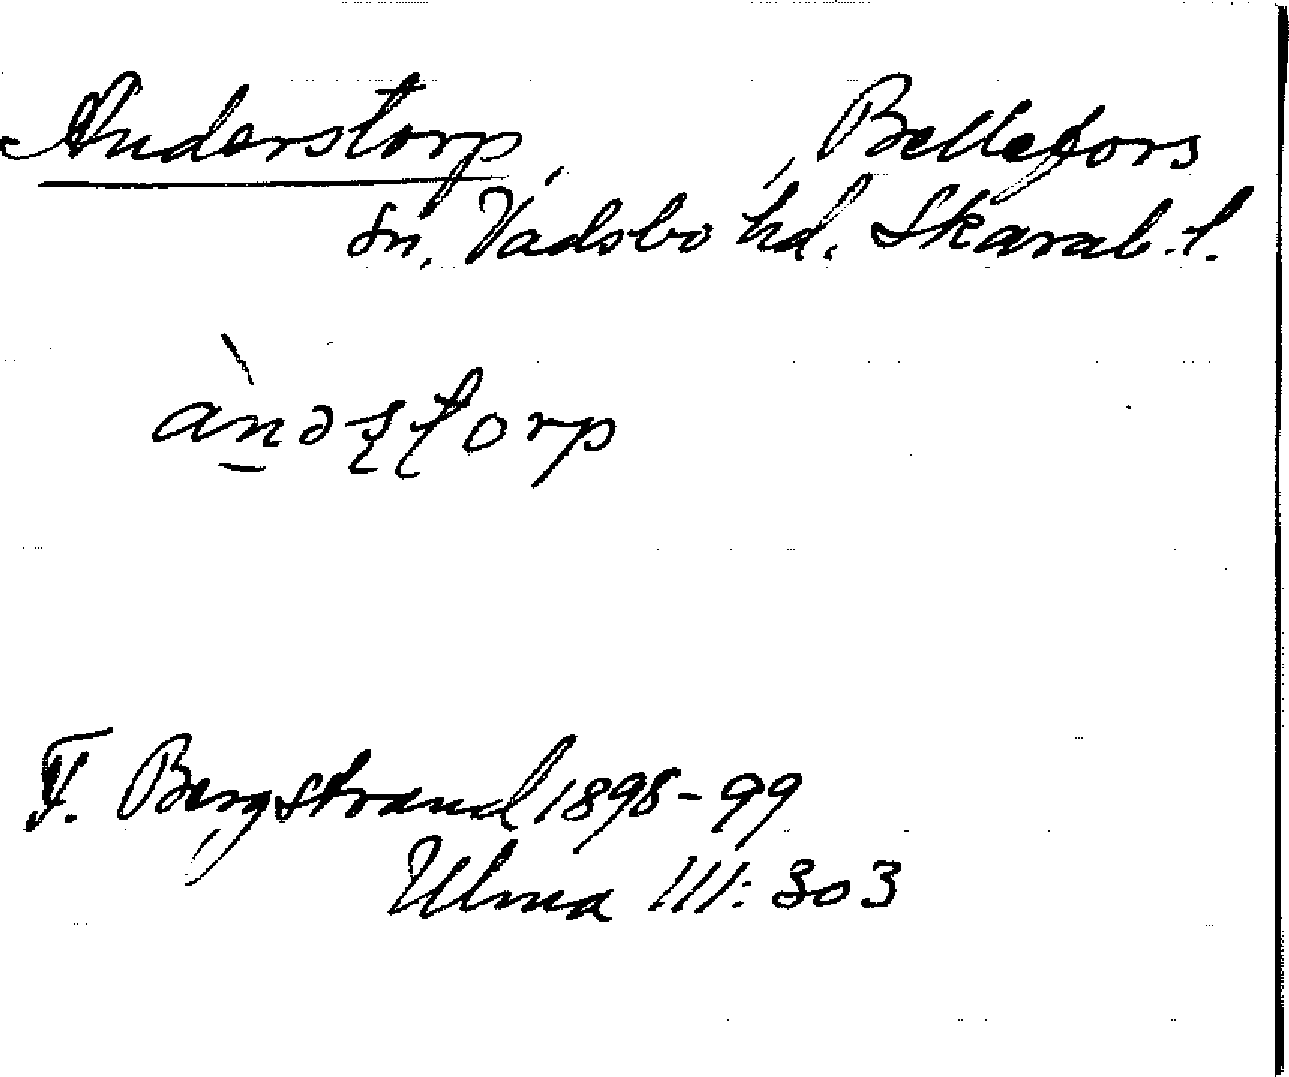 Anderstorp, Bellefors
sn, Vadsbo hd. Skarab. l.
àn̲əʂʈorp
F. Bergstrand 1898-99
Ulma 111:303